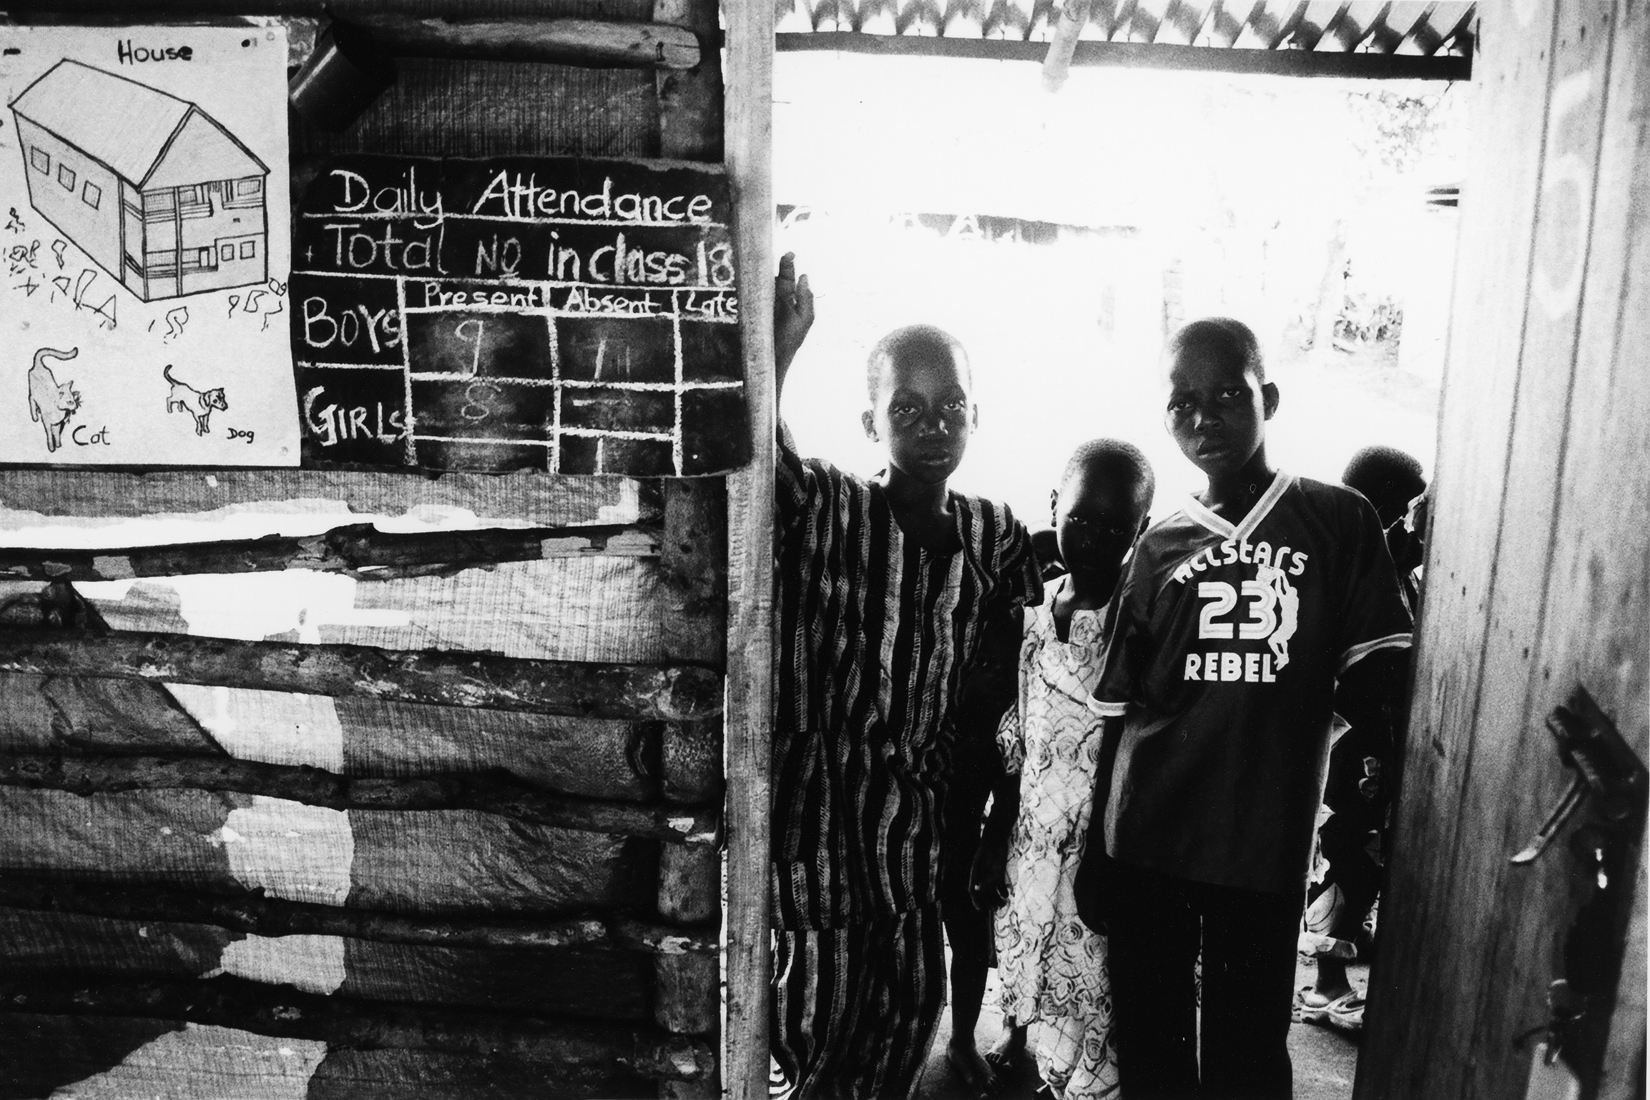 House
Cat
Dog
Daily Attendance
Total No in class 18
Present Absent Late
BOYS 9 1
GIRLS 8 –
ALLSTARS
23
REBEL